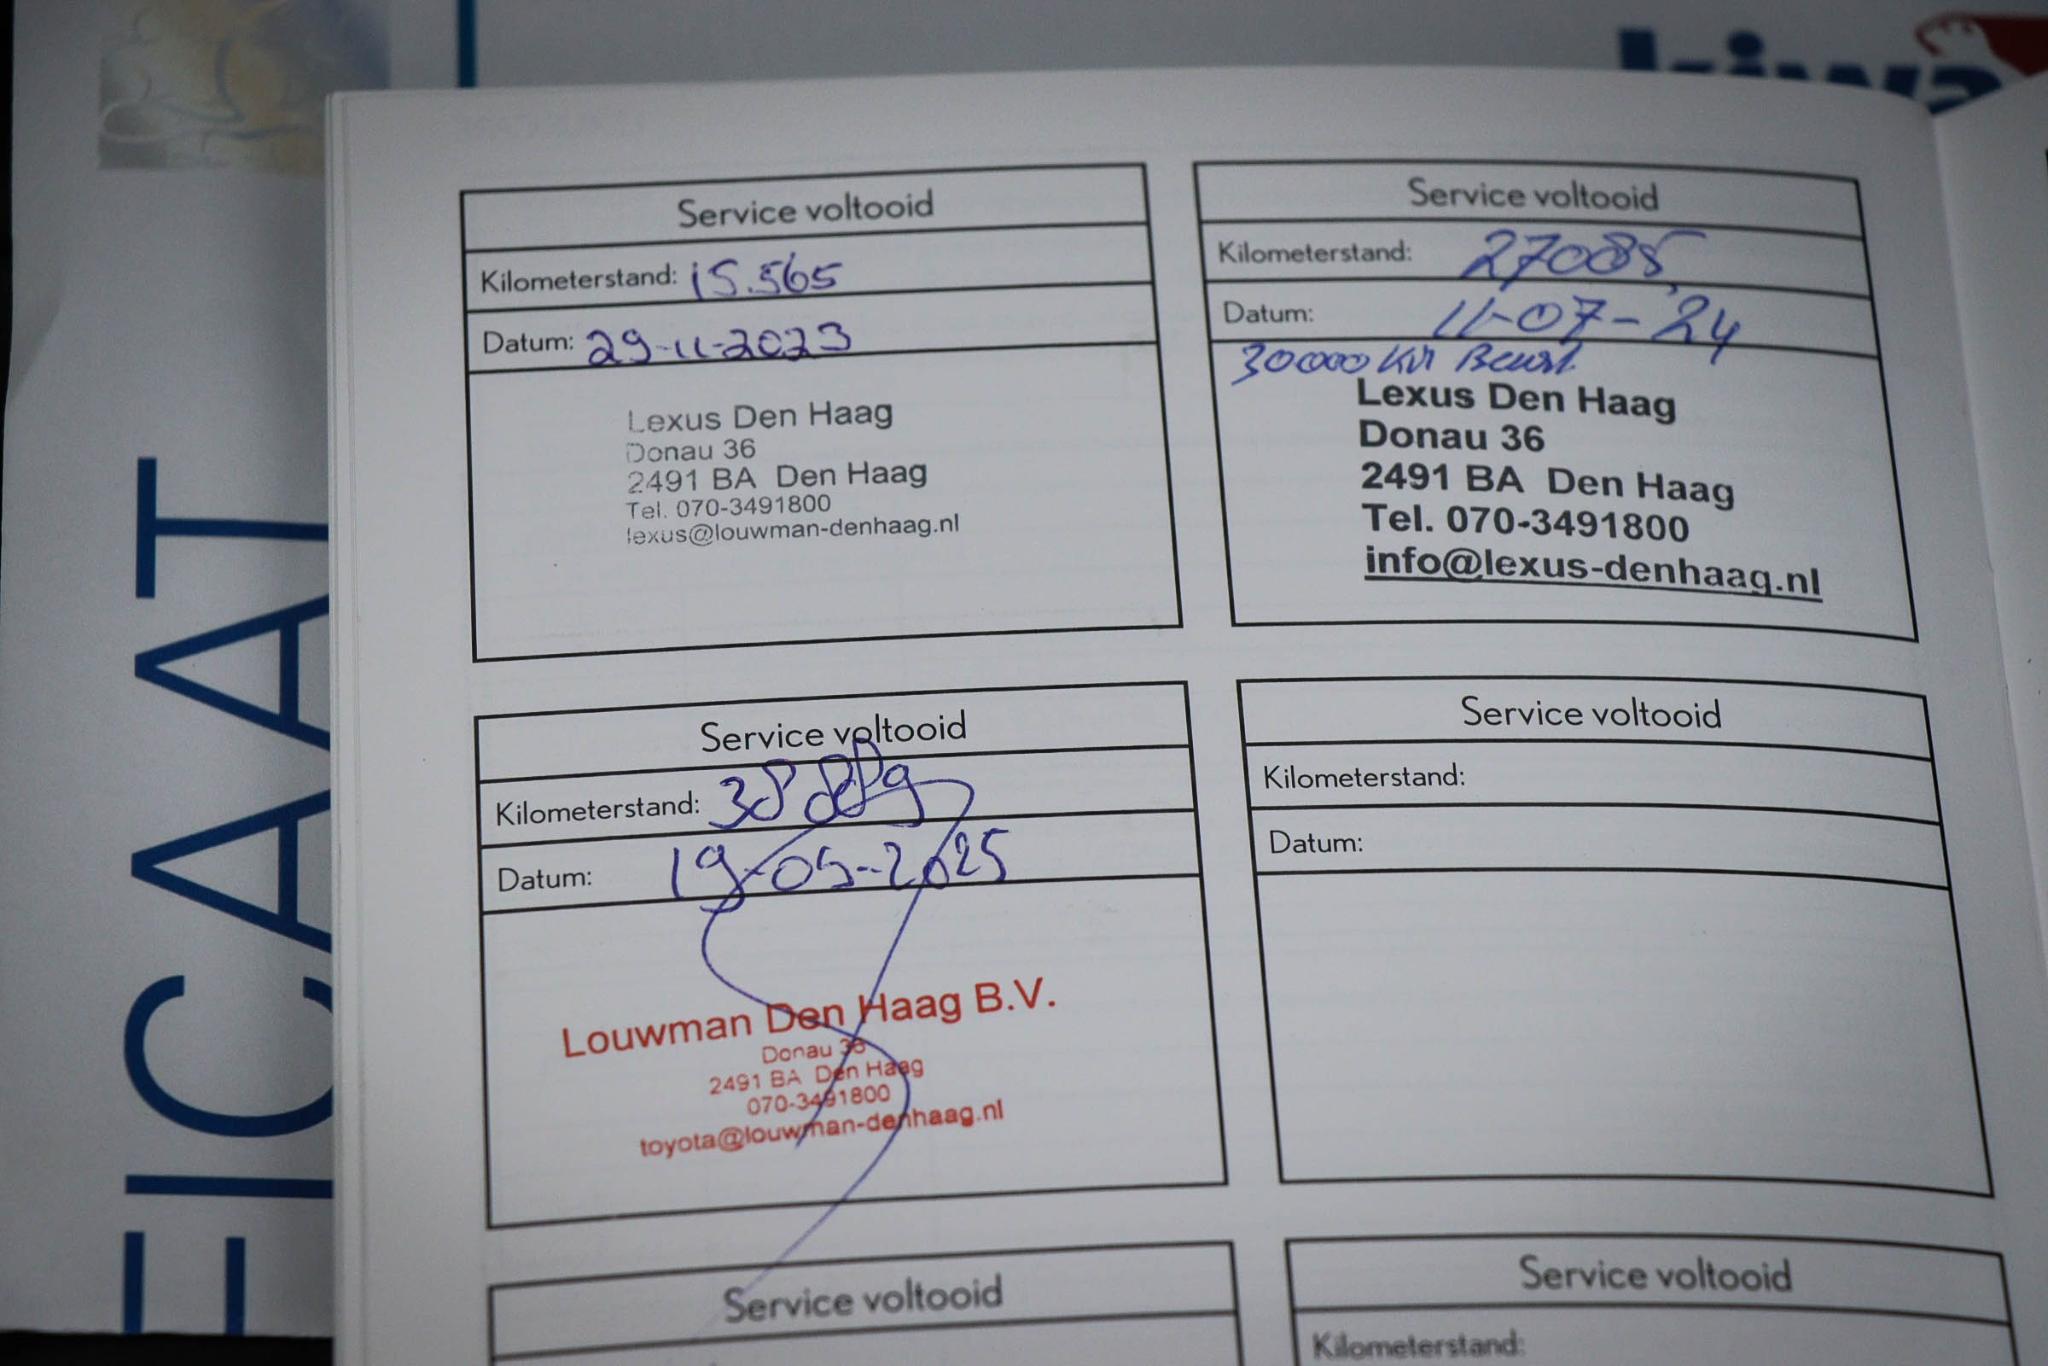 kiwa
EICAAT
Service voltooid
Kilometerstand: 15.565
Datum: 29-11-2023
Lexus Den Haag
Donau 36
2491 BA Den Haag
Tel. 070-3491800
lexus@louwman-denhaag.nl
Service voltooid
Kilometerstand: 27085
Datum: 11-07-'24
30000 KM Beurt
Lexus Den Haag
Donau 36
2491 BA Den Haag
Tel. 070-3491800
info@lexus-denhaag.nl
Service voltooid
Kilometerstand: 38
Datum: 19-05-2025
Louwman Den Haag B.V.
Donau 36
2491 BA Den Haag
070-3491800
toyota@louwman-denhaag.nl
Service voltooid
Kilometerstand:
Datum:
Service voltooid
Service voltooid
Kilometerstand: